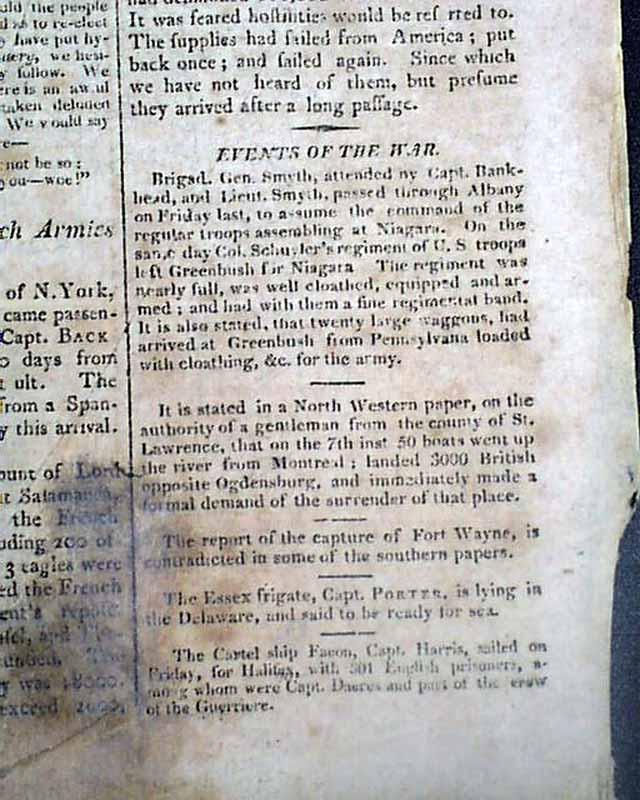 ould the people
to re-elect
have put hy-
we hesi-
follow. We
ere is an aw ul
taken deluded
We would say
re—
not be so;
you—woe!"
ch Armies
of N. York,
came passen-
Capt. BACK
days from
ult. The
from a Span-
y this arrival.
ount of Lord
at Salamanca,
the French
uding 200 of
3 eagles were
ed the French
ent's
and
The
y was 18000.
exceed 2000,
It was feared hostilities would be ref rred to.
The supplies had sailed from America; put
back once; and sailed again. Since which
we have not heard of them, but presume
they arrived after a long passage.
EVENTS OF THE WAR.
Brigad. Gen. Smyth, attended by Capt. Bank-
head, and Lieut. Smyth, passed through Albany
on Friday last, to assume the command of the
regular troops assembling at Niagara. On the
same day Col. Schuyler's regiment of U. S troops
left Greenbush for Niagara The regiment was
nearly full, was well cloathed, equipped and ar-
med; and had with them a fine regimental band.
It is also stated, that twenty large waggons, had
arrived at Greenbush from Pennsylvana loaded
with cloathing, &c. for the army.
It is stated in a North Western paper, on the
authority of a gentleman from the county of St.
Lawrence, that on the 7th inst 50 boats went up
the river from Montreal; landed 3000 British
opposite Ogdensburg, and immediately made a
formal demand of the surrender of that place.
The report of the capture of Fort Wayne, is
contradicted in some of the southern papers.
The Essex frigate, Capt. PORTER, is lying in
the Delaware, and said to be ready for sea.
The Cartel ship Facon, Capt. Harris, sailed on
Friday, for Halifax, with 301 English prisoners, a-
mong whom were Capt. Dacres and part of the crew
of the Guerriere.